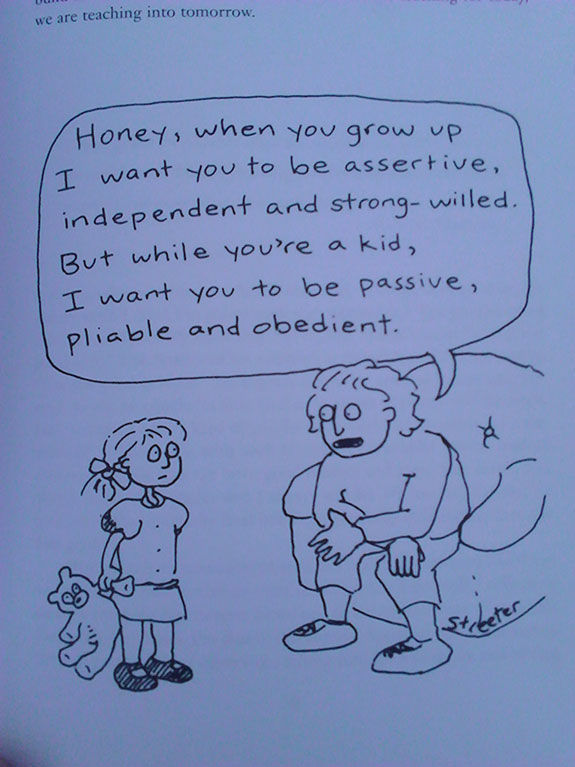 we are teaching into tomorrow.
Honey, when you grow up
I want you to be assertive,
independent and strong-willed.
But while you're a kid,
I want you to be passive,
pliable and obedient.
Streeter